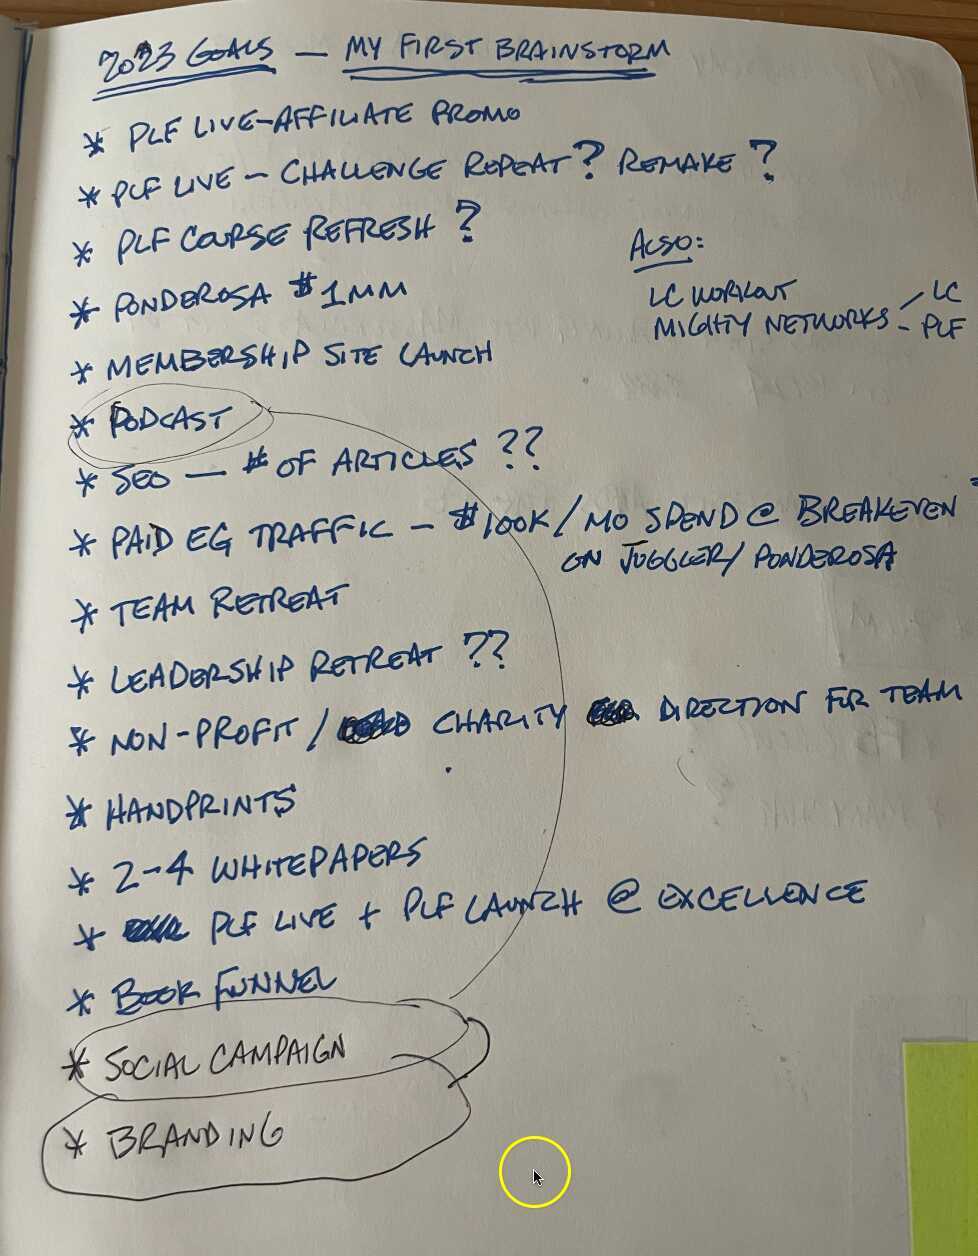 2023 GOALS — MY FIRST BRAINSTORM
* PLF LIVE-AFFILIATE PROMO
* PLF LIVE - CHALLENGE REPEAT? REMAKE?
* PLF COURSE REFRESH?
* PONDEROSA $1MM
* MEMBERSHIP SITE LAUNCH
* PODCAST
* SEO — # OF ARTICLES ??
* PAID EG TRAFFIC - $100K/MO SPEND @ BREAKEVEN
ON JUGGLER/PONDEROSA
* TEAM RETREAT
* LEADERSHIP RETREAT ??
* NON-PROFIT / CHARITY DIRECTION FOR TEAM
* HANDPRINTS
* 2-4 WHITEPAPERS
* PLF LIVE + PLF LAUNCH @ EXCELLENCE
* BOOK FUNNEL
* SOCIAL CAMPAIGN
* BRANDING
ALSO:
LC WORKOUT
MIGHTY NETWORKS - LC
- PLF